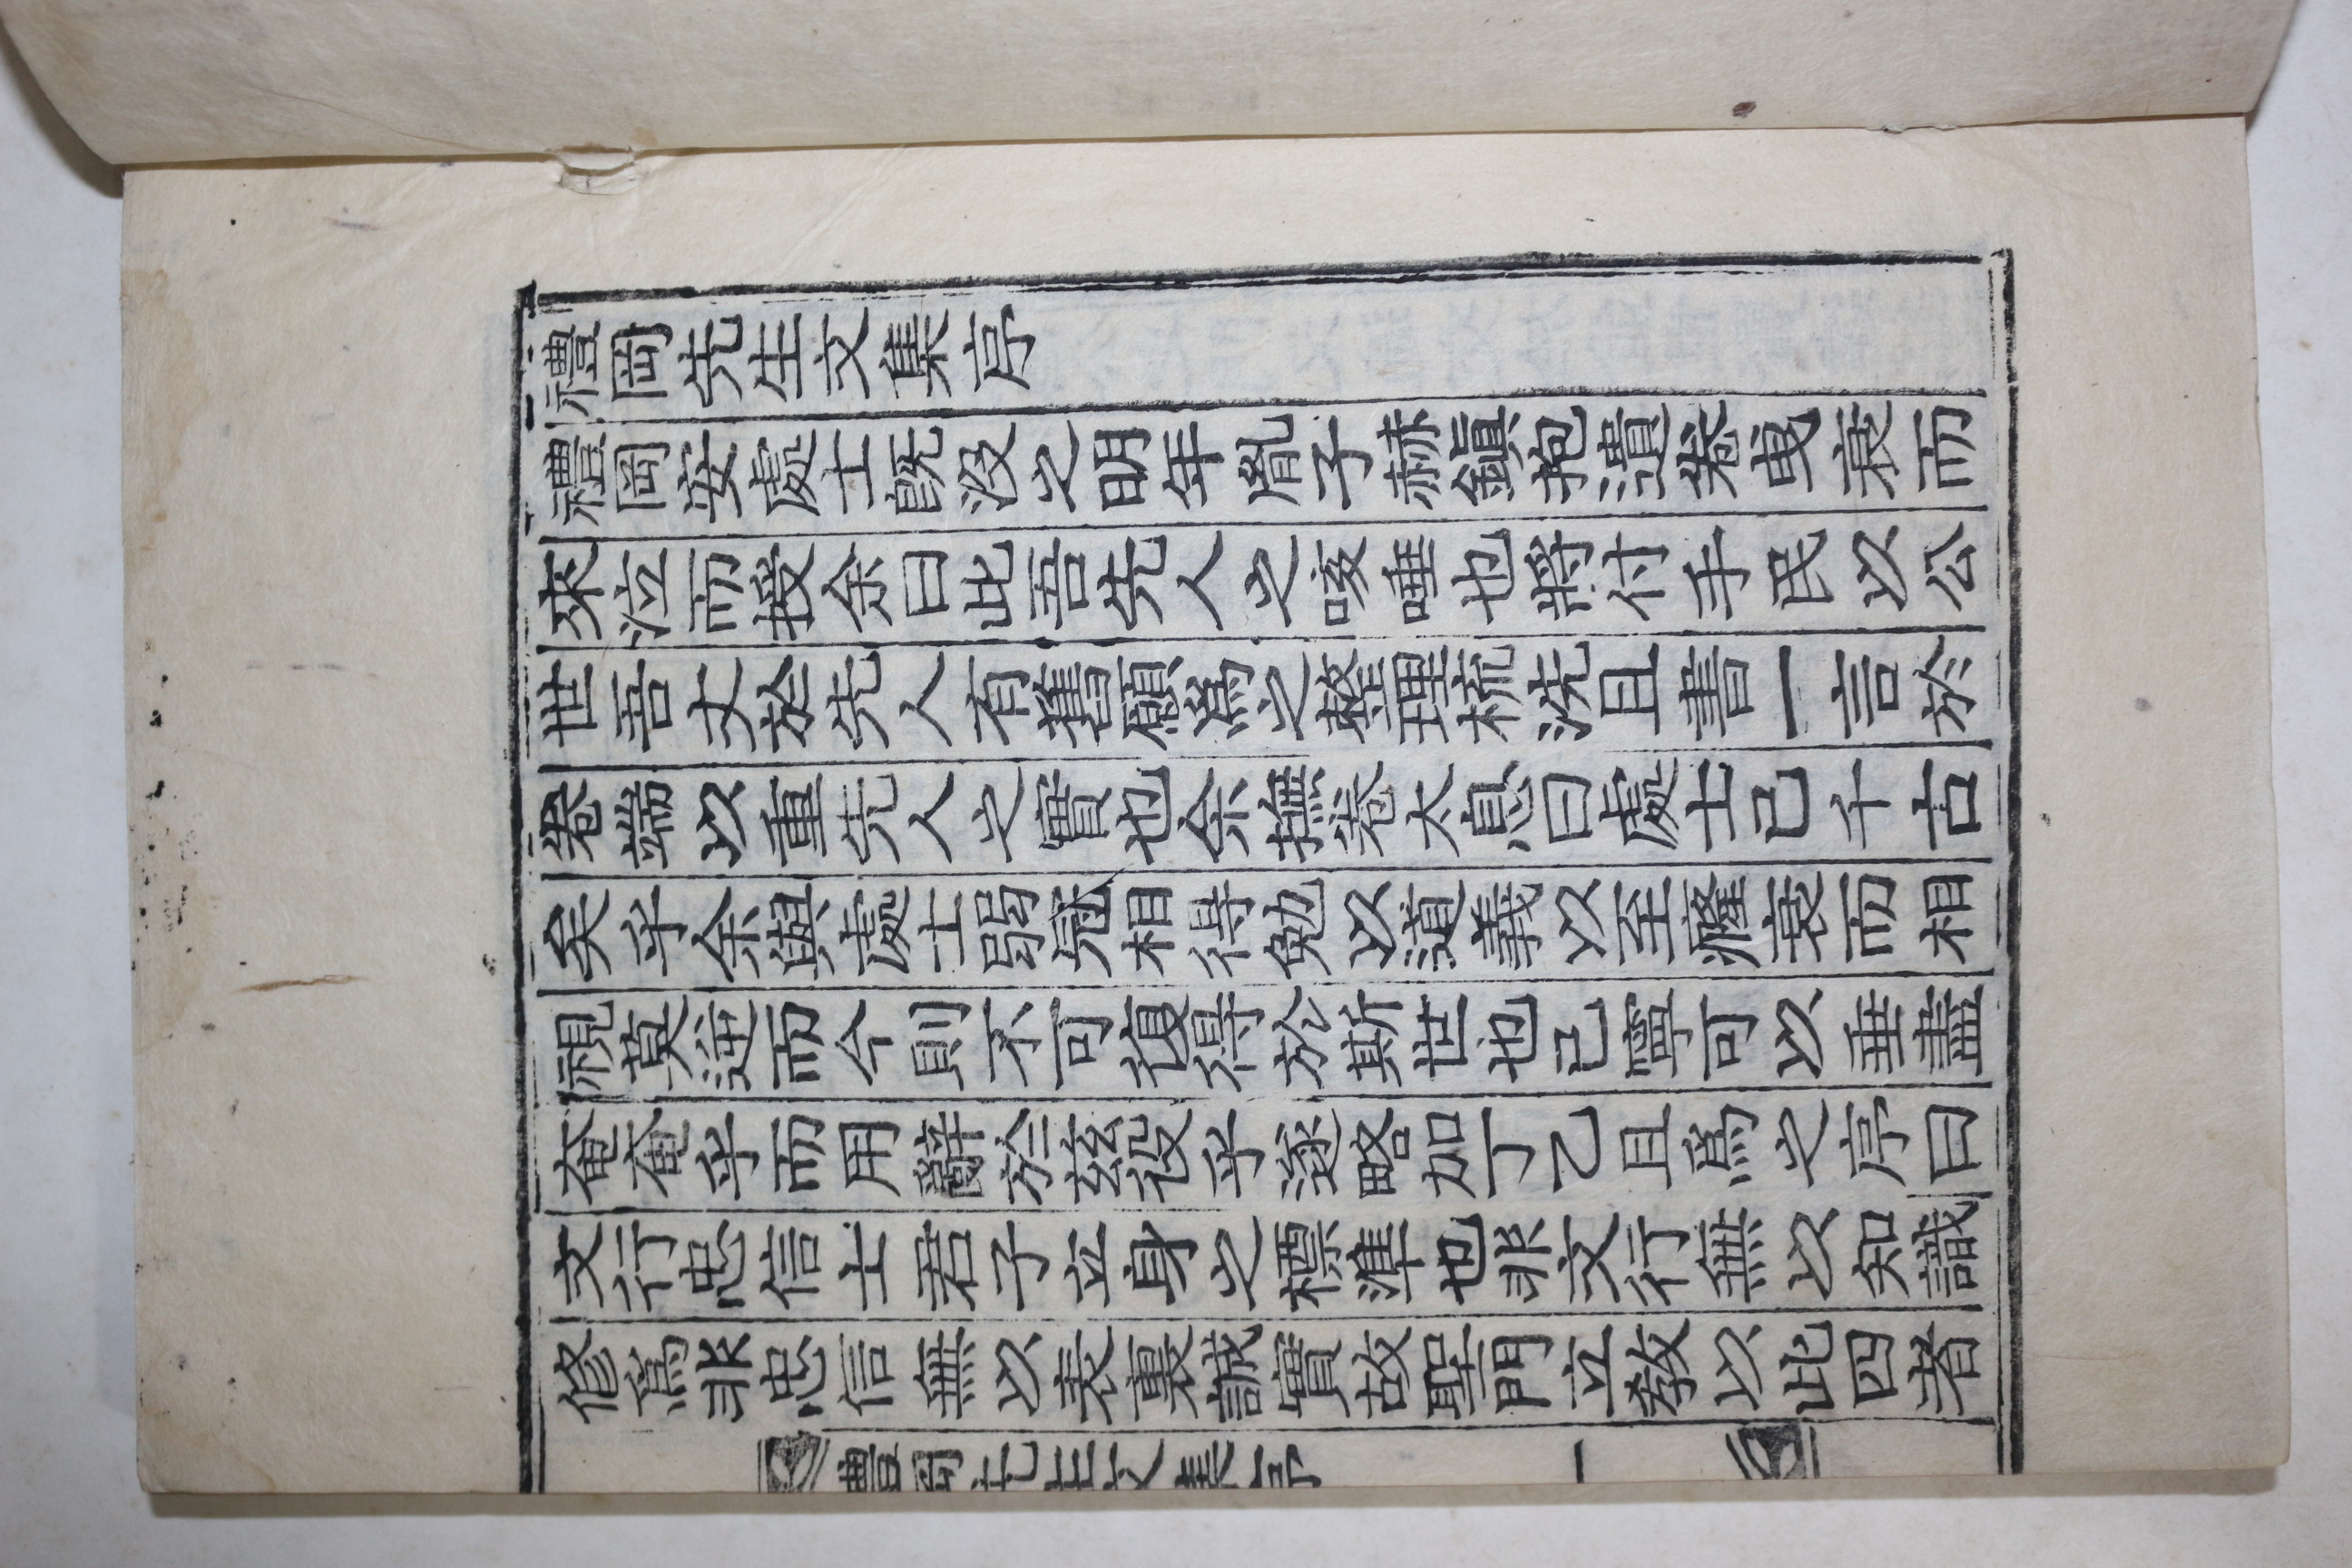 禮岡先生文集序
禮岡安處士旣沒之明年胤子赫鎭抱遺卷曳衰而
來泣而授余曰此吾先人之咳唾也將付手民以公
世吾丈於先人有舊願爲之整理梳洗且書一言於
卷端以重先人之實也余撫卷太息曰處士已千古
矣乎余與處士弱冠相得勉以道義以至癃衰而相
視莫逆而今則不可復得於斯世也已寧可以垂盡
奄奄乎而用辭於玆役乎遂略加丁乙且爲之序曰
文行忠信士君子立身之標準也非文行無以知識
修爲非忠信無以表裏誠實故聖門立敎以此四者
禮岡先生文集序
一